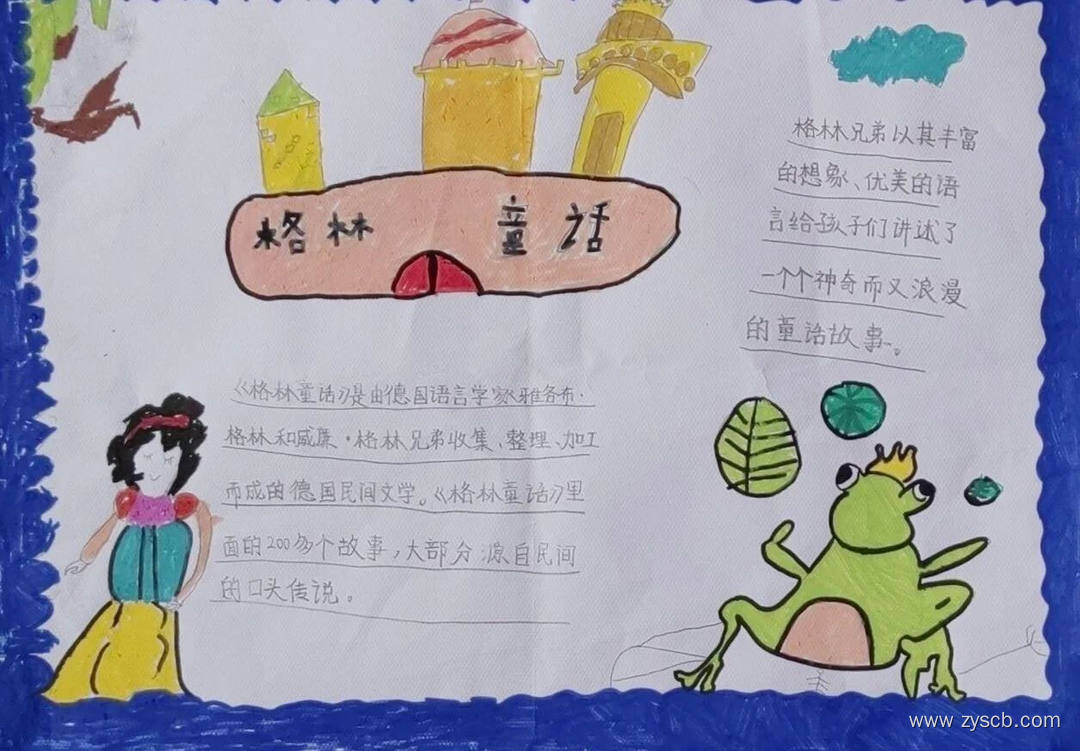 格林 童话
格林兄弟以其丰富
的想象、优美的语
言给孩子们讲述了
一个个神奇而又浪漫
的童话故事。
《格林童话》是由德国语言学家雅各布·
格林和威廉·格林兄弟收集、整理、加工
而成的德国民间文学。《格林童话》里
面的200多个故事，大部分源自民间
的口头传说。
www.zyscb.com